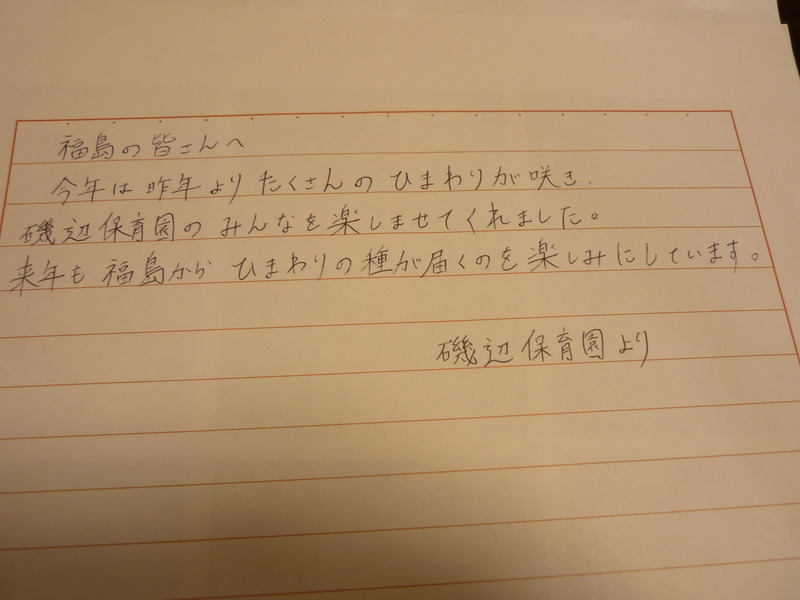 福島の皆さんへ
今年は昨年よりたくさんのひまわりが咲き、
磯辺保育園のみんなを楽しませてくれました。
来年も福島からひまわりの種が届くのを楽しみにしています。
磯辺保育園より